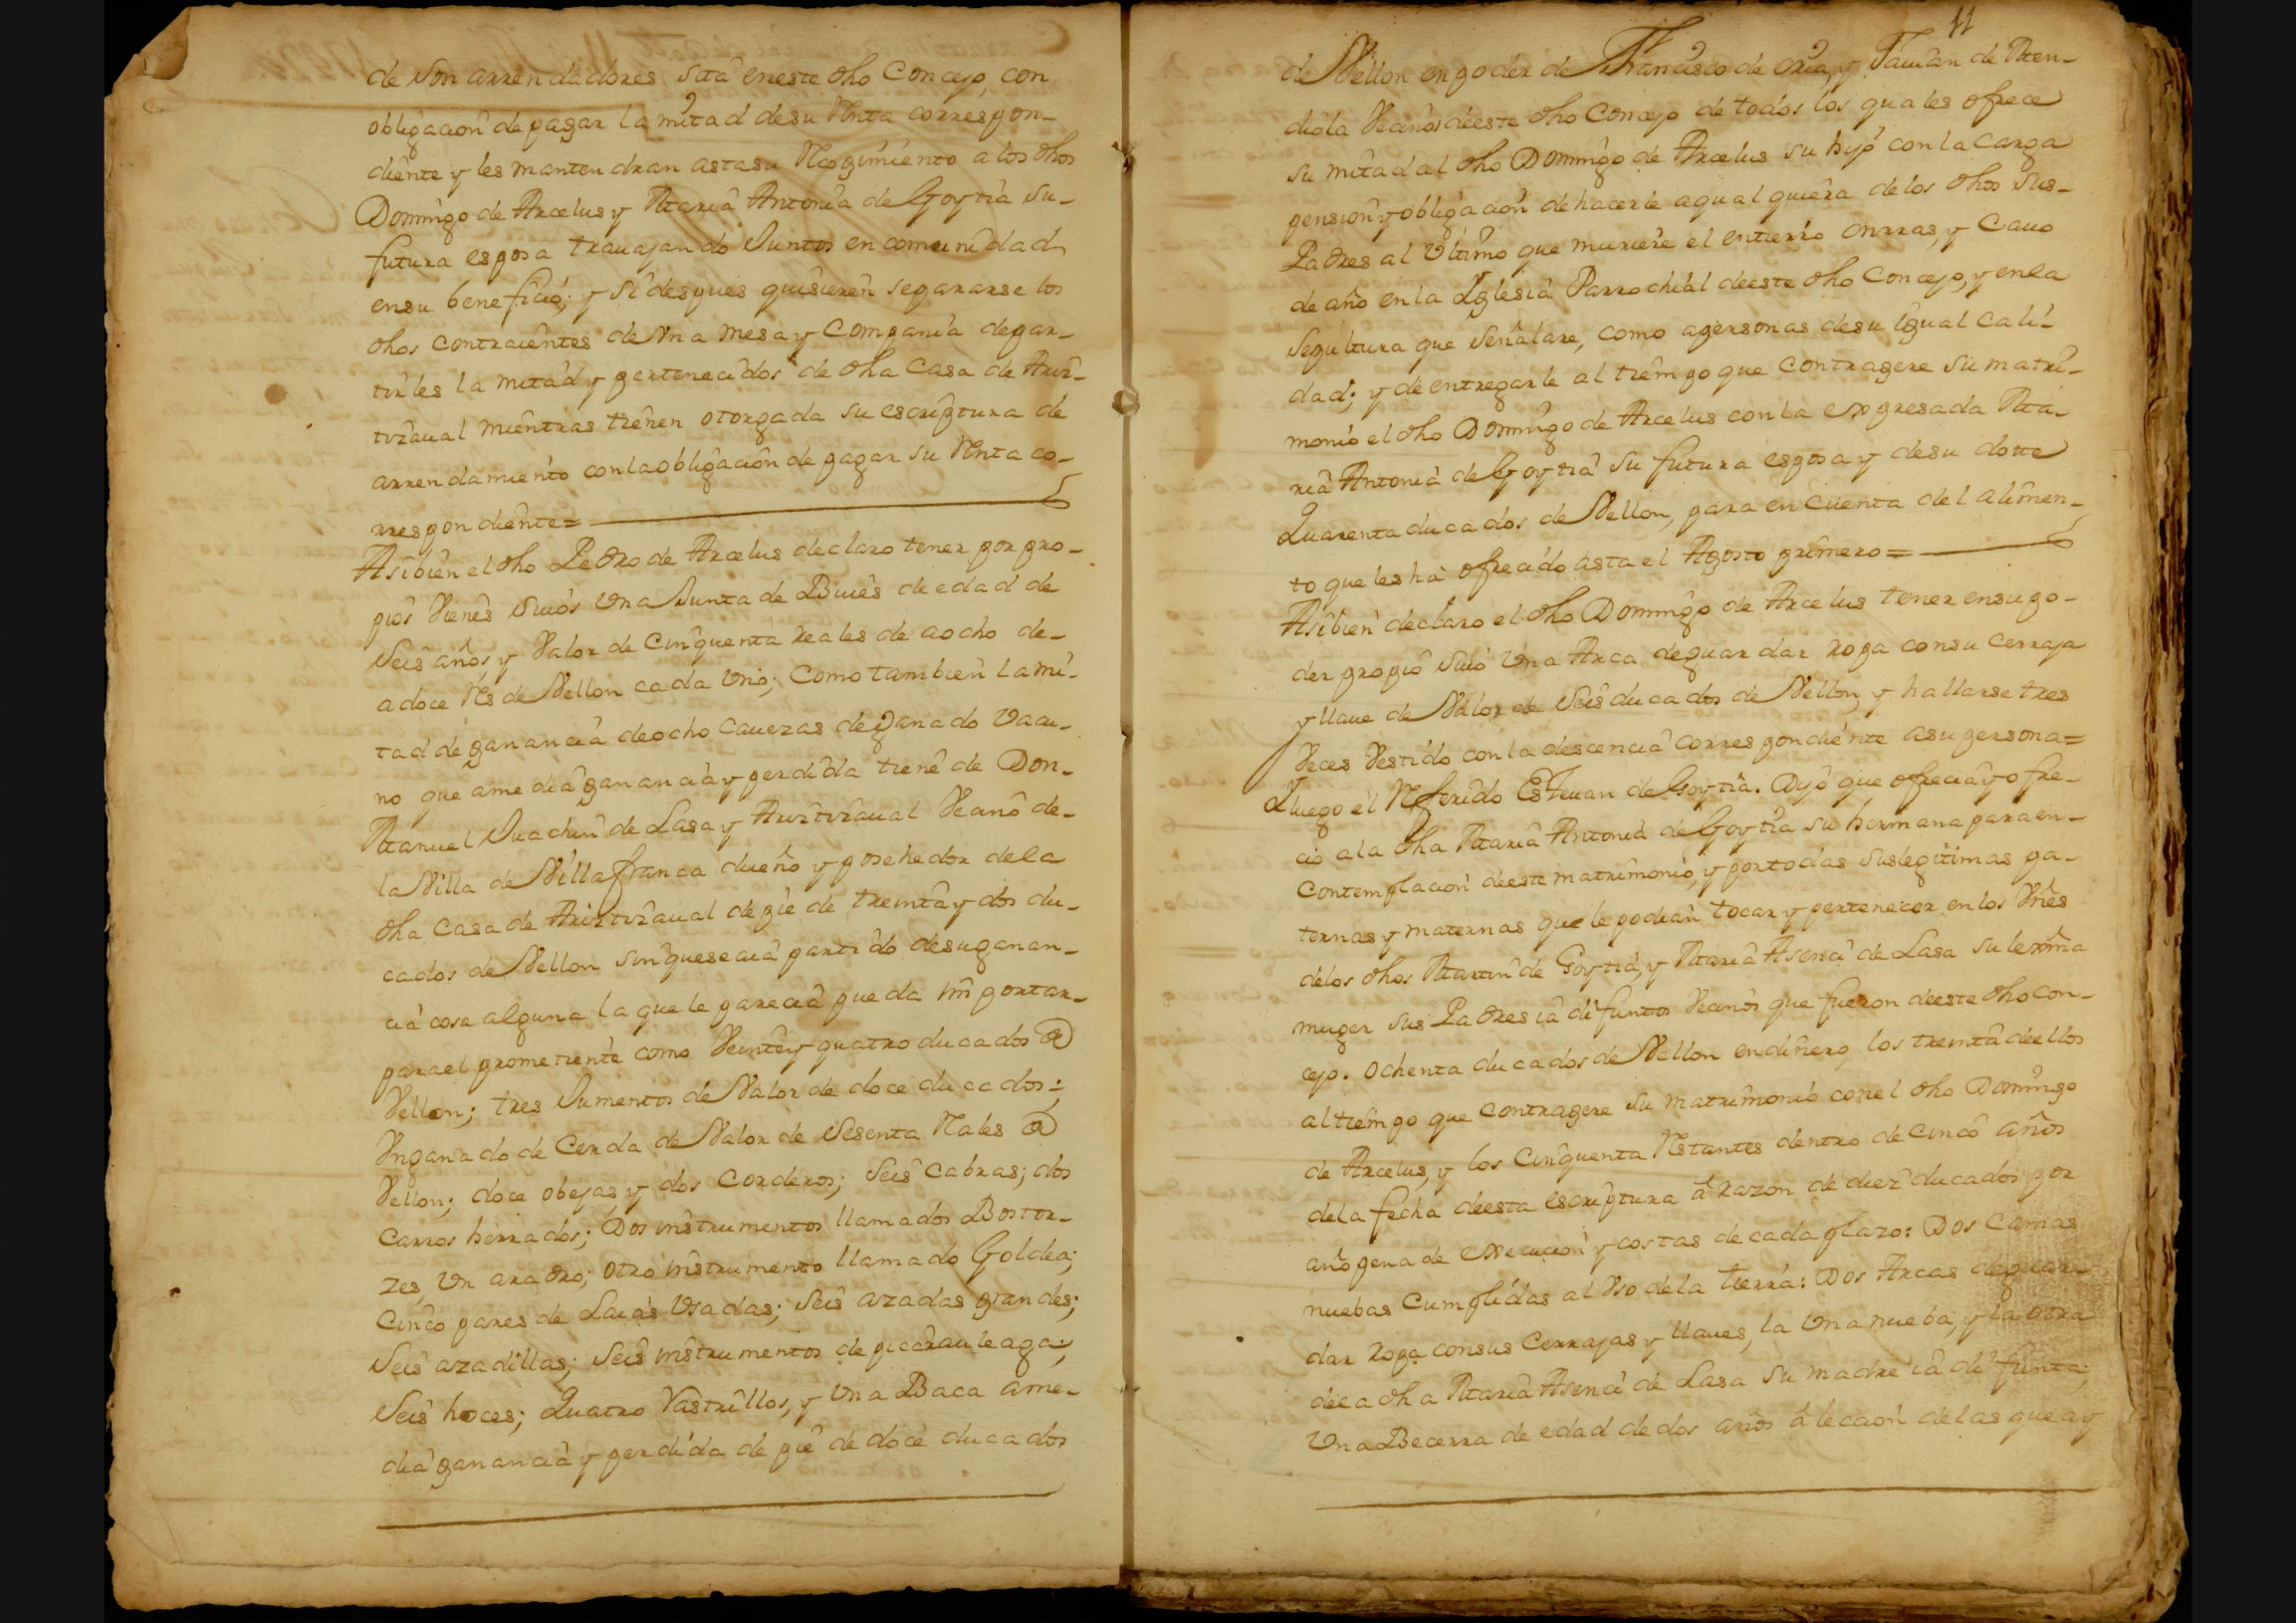 de son arrendadores sita en este dho Concejo, con
obligacion de pagar la mitad de su Renta correspon-
diente y les mantendran asta su Recogimiento a los dhos
Domingo de Arcelus y Maria Antonia de Goytia su-
futura esposa trauajando Juntos en comunidad
en su beneficio; y si despues quisieren separarse los
dhos contraientes de Una mesa y Compania de par-
tirles la mitad y pertenecidos de dha Casa de Ariz-
tizaual mientras tienen otorgada su escriptura de
arrendamiento con la obligacion de pagar su Renta co-
rrespondiente=
Asibien el dho Pedro de Arcelus declaro tener por pro-
pios Vienes suios Una Junta de Buies de edad de
Seis años y Valor de Cinquenta reales de a ocho de-
a doce Rs de Vellon cada Uno; Como tambien la mi-
tad de ganancia de ocho Cauezas de ganado Vacu-
no que a media ganancia y perdida tiene de Don-
Manuel Juachin de Lasa y Ariztizaual Vecino de-
la Villa de Villafranca dueño y posehedor de la
dha Casa de Ariztizaual de pie de treinta y dos du-
cados de Vellon sin que se aia partido de su ganan-
cia cosa alguna la que le parecia pueda importar-
para el prometiente como Veinte y quatro ducados de
Vellon; tres Jumentos de Valor de doce ducados;
Un ganado de Cerda de Valor de Sesenta Reales de
Vellon; doce obejas y dos Corderos; Seis Cabras; dos
Carros herrados; Dos instrumentos llamados Bostor-
zes, Un aradro; otro instrumento llamado Goldea;
Cinco pares de Laias Usadas; Seis azadas grandes;
Seis azadillas; Seis instrumentos de
Seis hoces; Quatro Rastrillos, y Una Baca a me-
dia ganancia y perdida de pie de doce ducados
11
de Vellon en poder de Francisco de oria, y de
Vecinos de este dho Concejo de todos los quales ofrece
su mitad al dho Domingo de Arcelus su hijo con la Carga
pension y obligacion de hacerle a qual quiera de los dhos sus-
Padres al Ultimo que muriere el entierro onrras, y Cauo
de año en la Yglesia Parrochial de este dho Concejo, y en la
Sepultura que Señalare, como a personas de su igual Cali-
dad; y de entregarle al tiempo que contragere su matri-
monio el dho Domingo de Arcelus con la expresada Ma-
ria Antonia de Goytia su futura esposa y de su dotte
Quarenta ducados de Vellon, para en cuenta del alimen-
to que les ha ofrecido asta el Agosto primero=
Asibien declaro el dho Domingo de Arcelus tener en su po-
der propio suio Una Arca de guardar ropa con su Cerraja
y llaue de Valor de Seis ducados de Vellon, y hallarse tres
Veces Vestido con la descencia correspondiente a su persona=
Luego el Referido Esteuan de Goytia. Dijo que ofrecia y ofre-
cio a la dha Maria Antonia de Goytia su hermana para en-
Contemplacion de este matrimonio, y por todas sus legitimas pa-
ternas y maternas que le podian tocar y pertenecer en los Vnes
de los dhos Martin de Goytia, y Maria Asencia de Lasa su lexma
muger sus Padres ia difuntos Vecinos que fueron de este dho Con-
cejo. ochenta ducados de Vellon en dinero, los treinta de ellos
al tiempo que contragere su matrimonio con el dho Domingo
de Arcelus, y los Cinquenta Restantes dentro de cinco años
de la fecha de esta escriptura a razon de diez ducados por
año pena de execucion y costas de cada plazo: Dos Camas
nuebas Cumplidas al Vso de la tierra: Dos Arcas de guar-
dar ropa con sus Cerrajas y llaues, la Una nueba, y la otra
de la dha Maria Asencia de Lasa su madre ia difunta;
Una Becerra de edad de dos años a lecion de las que ay